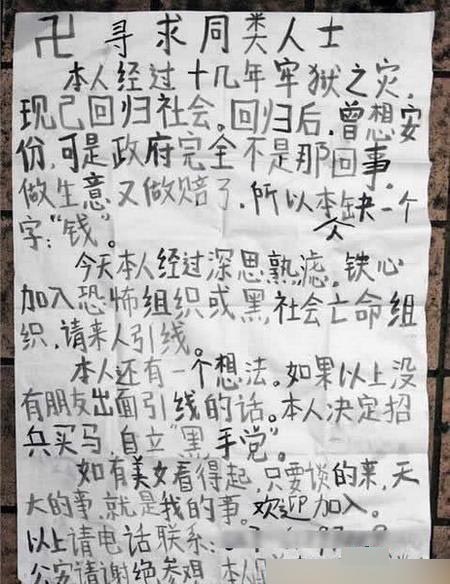 卍 寻求同类人士
本人经过十几年牢狱之灾,
现已回归社会。回归后,曾想安
份,可是政府完全不是那回事。
做生意又做赔了,所以本人缺一个
字:“钱”。
今天本人经过深思熟虑,铁心
加入恐怖组织或黑社会亡命组
织,请来人引线。
本人还有一个想法。如果以上没
有朋友出面引线的话。本人决定招
兵买马,自立“黑手党”。
如有美女看得起,只要谈的来,天
大的事,就是我的事。欢迎加入。
以上请电话联系:
公安请谢绝参观,本人